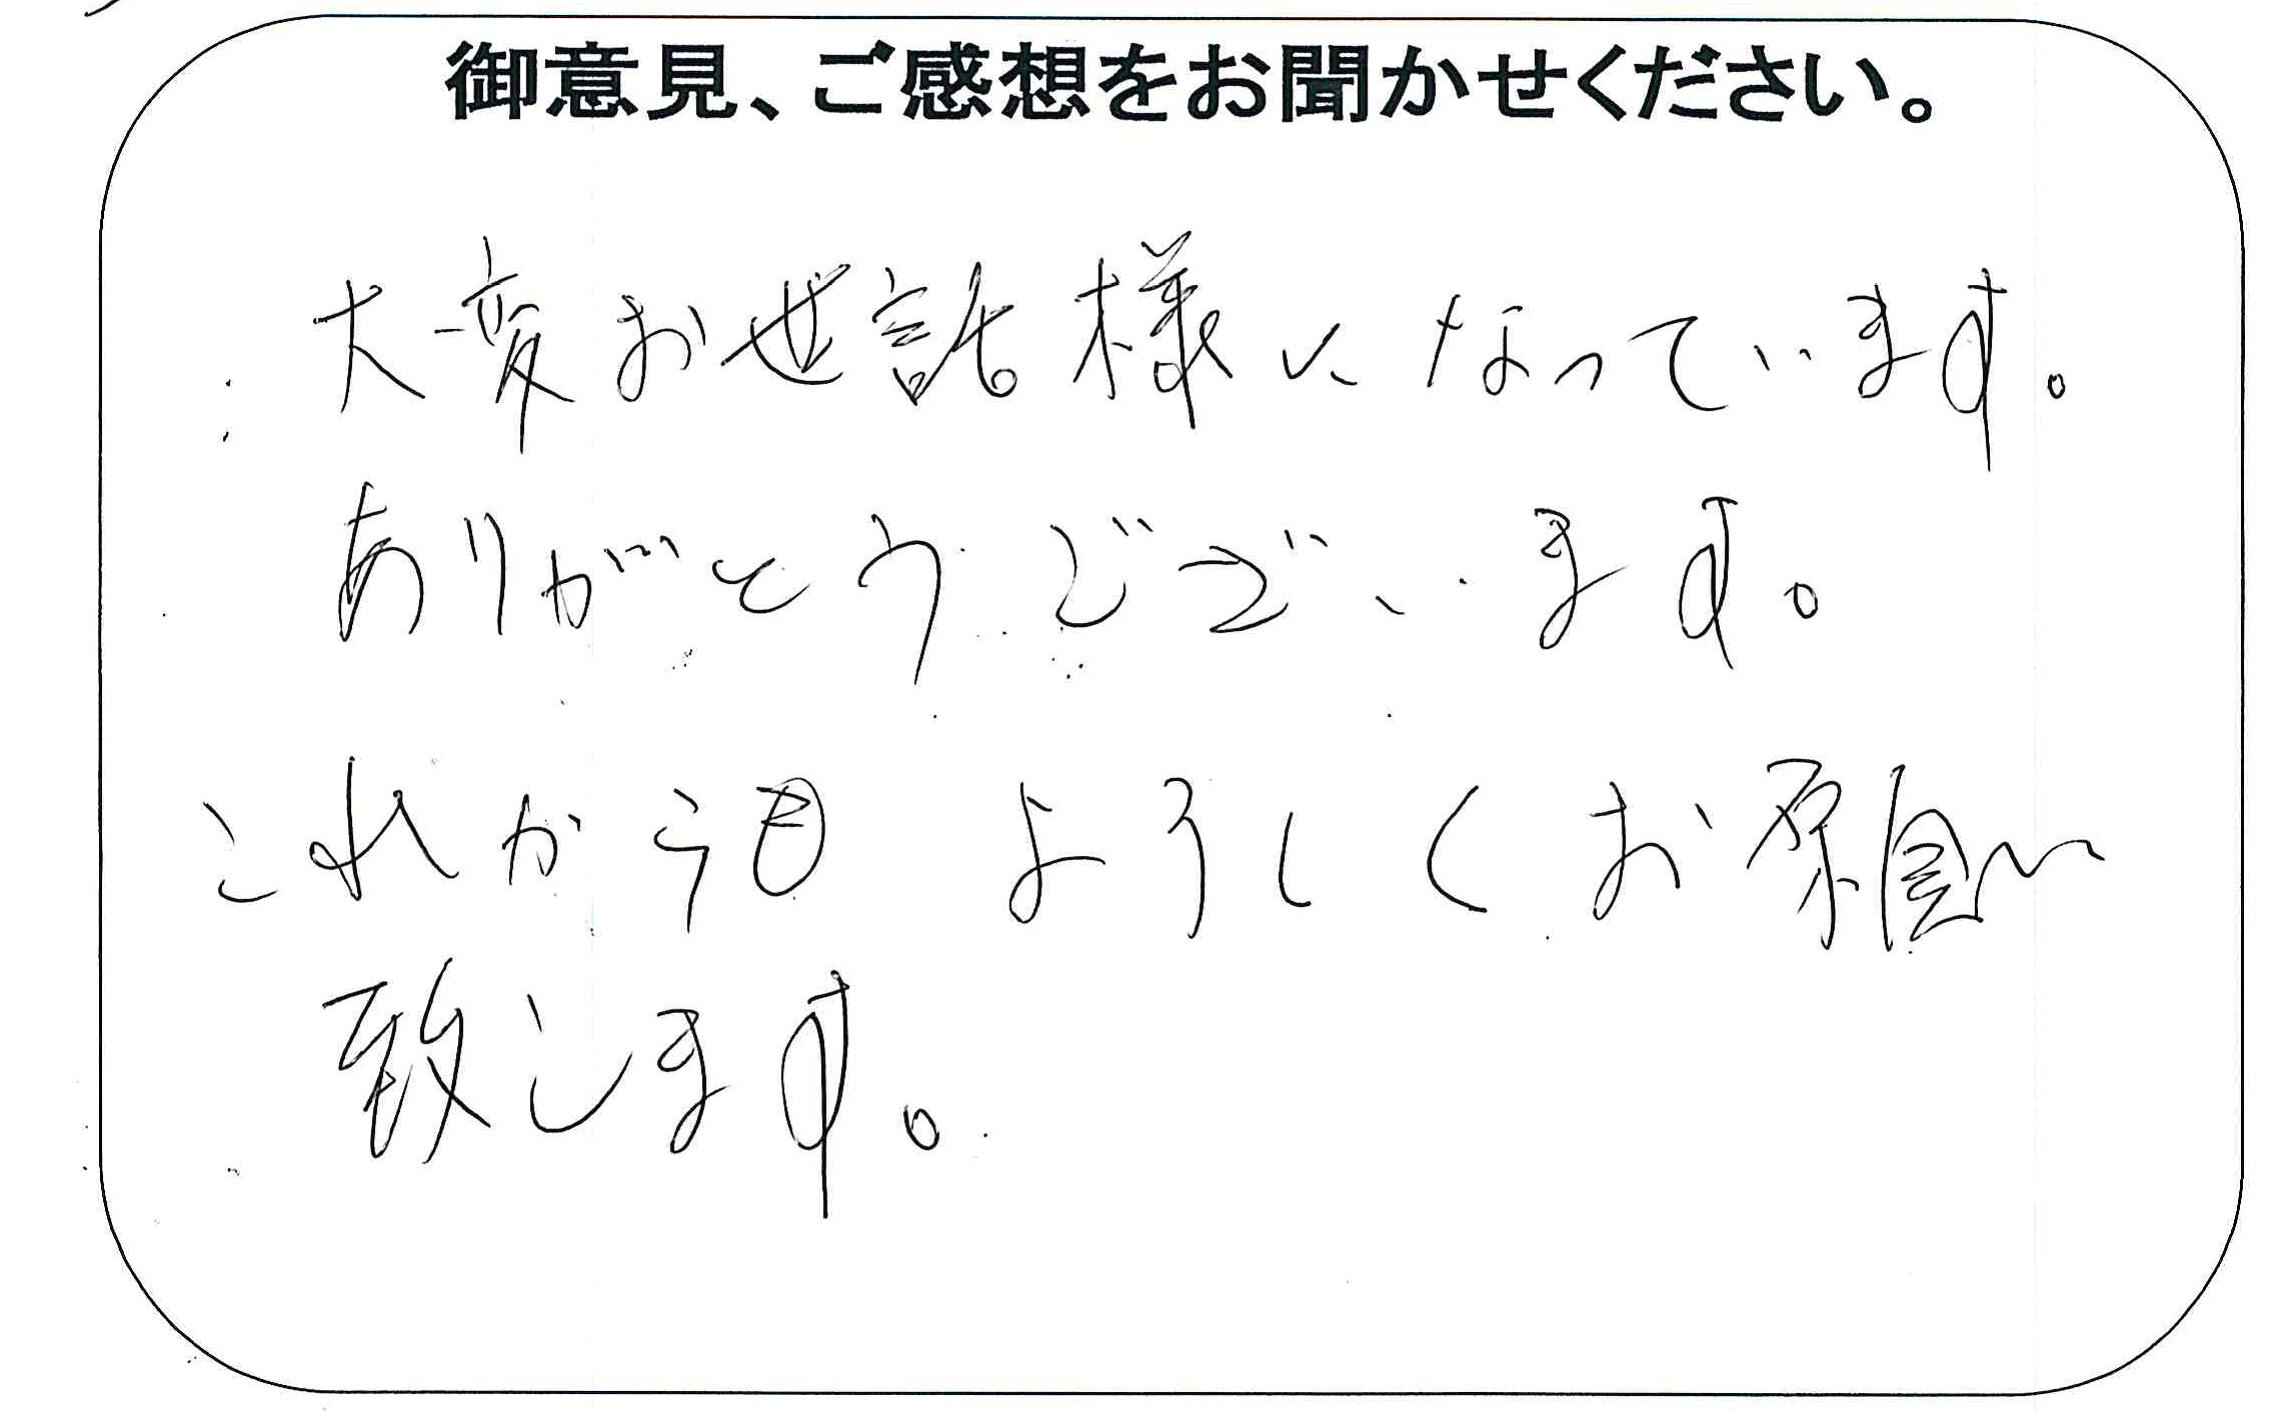 御意見、ご感想をお聞かせください。
大変お世話様になっています。
ありがとうございます。
これから今もよろしくお願い
致します。